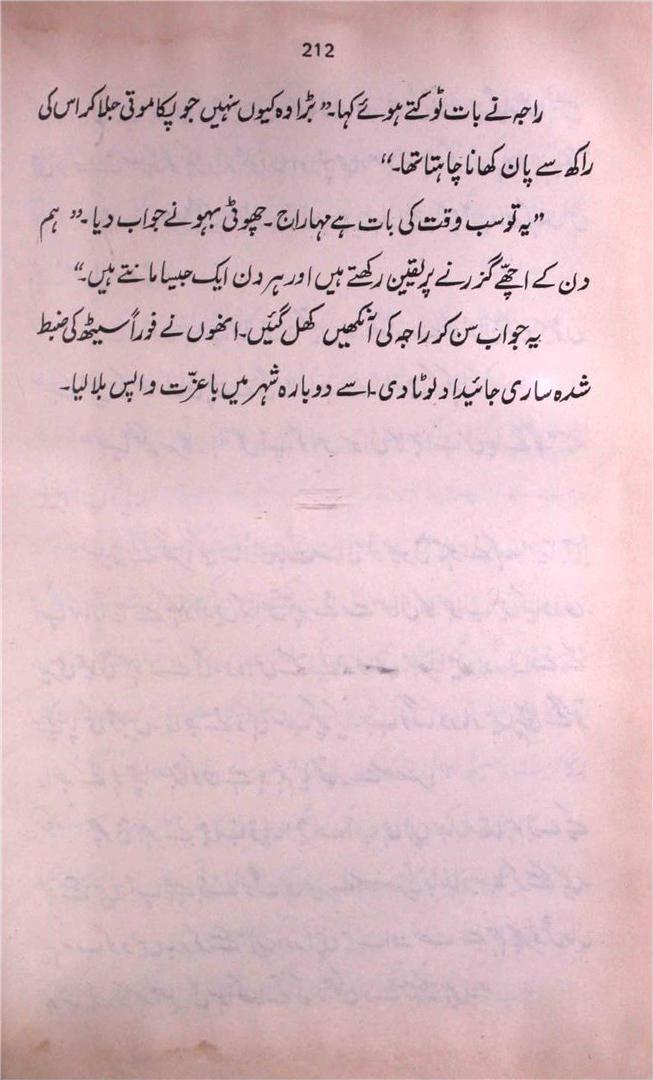 212
راجہ نے بات ٹوکتے ہوئے کہا۔ ”بڑا وہ کیوں نہیں جو پکا موتی جلا کر اس کی
راکھ سے پان کھانا چاہتا تھا۔“
”یہ تو سب وقت کی بات ہے مہاراج۔ چھوٹی بہو نے جواب دیا۔ ”ہم
دن کے اچھّے گزرنے پر یقین رکھتے ہیں اور ہر دن ایک جیسا مانتے ہیں۔“
یہ جواب سن کر راجہ کی آنکھیں کھل گئیں۔ انھوں نے فوراً سیٹھ کی ضبط
شدہ ساری جائیداد لوٹا دی۔ اسے دوبارہ شہر میں باعزّت واپس بلا لیا۔